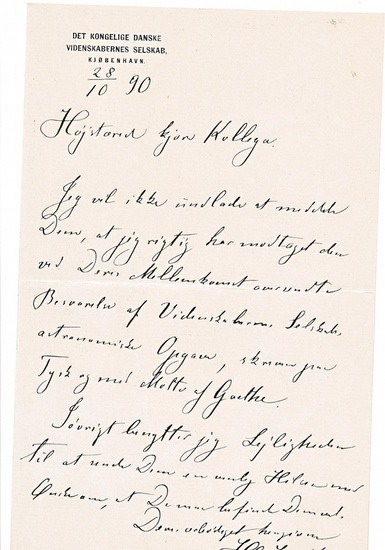 DET KONGELIGE DANSKE
VIDENSKABERNES SELSKAB,
KJØBENHAVN.
28/10 90
Højstærede kjære Kollega.
Jeg vil ikke undlade at meddele
Dem, at jeg rigtig har modtaget den
ved Deres Mellemkomst oversendte
Besvarelse af Videnskabernes Selskabs
astronomiske Opgave, skreven paa
Tysk og med Motto af Goethe.
Iøvrigt benytter jeg Lejligheden
til at sende Dem en venlig Hilsen med
Ønske om, at De maa befinde Dem vel.
Deres hengivne